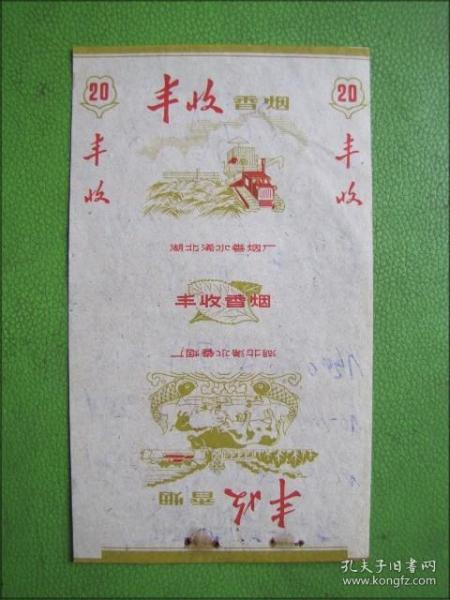 20 丰收香烟 20
丰收 丰收
湖北浠水卷烟厂
丰收香烟
湖北浠水卷烟厂
丰收香烟
孔夫子旧书网
www.kongfz.com